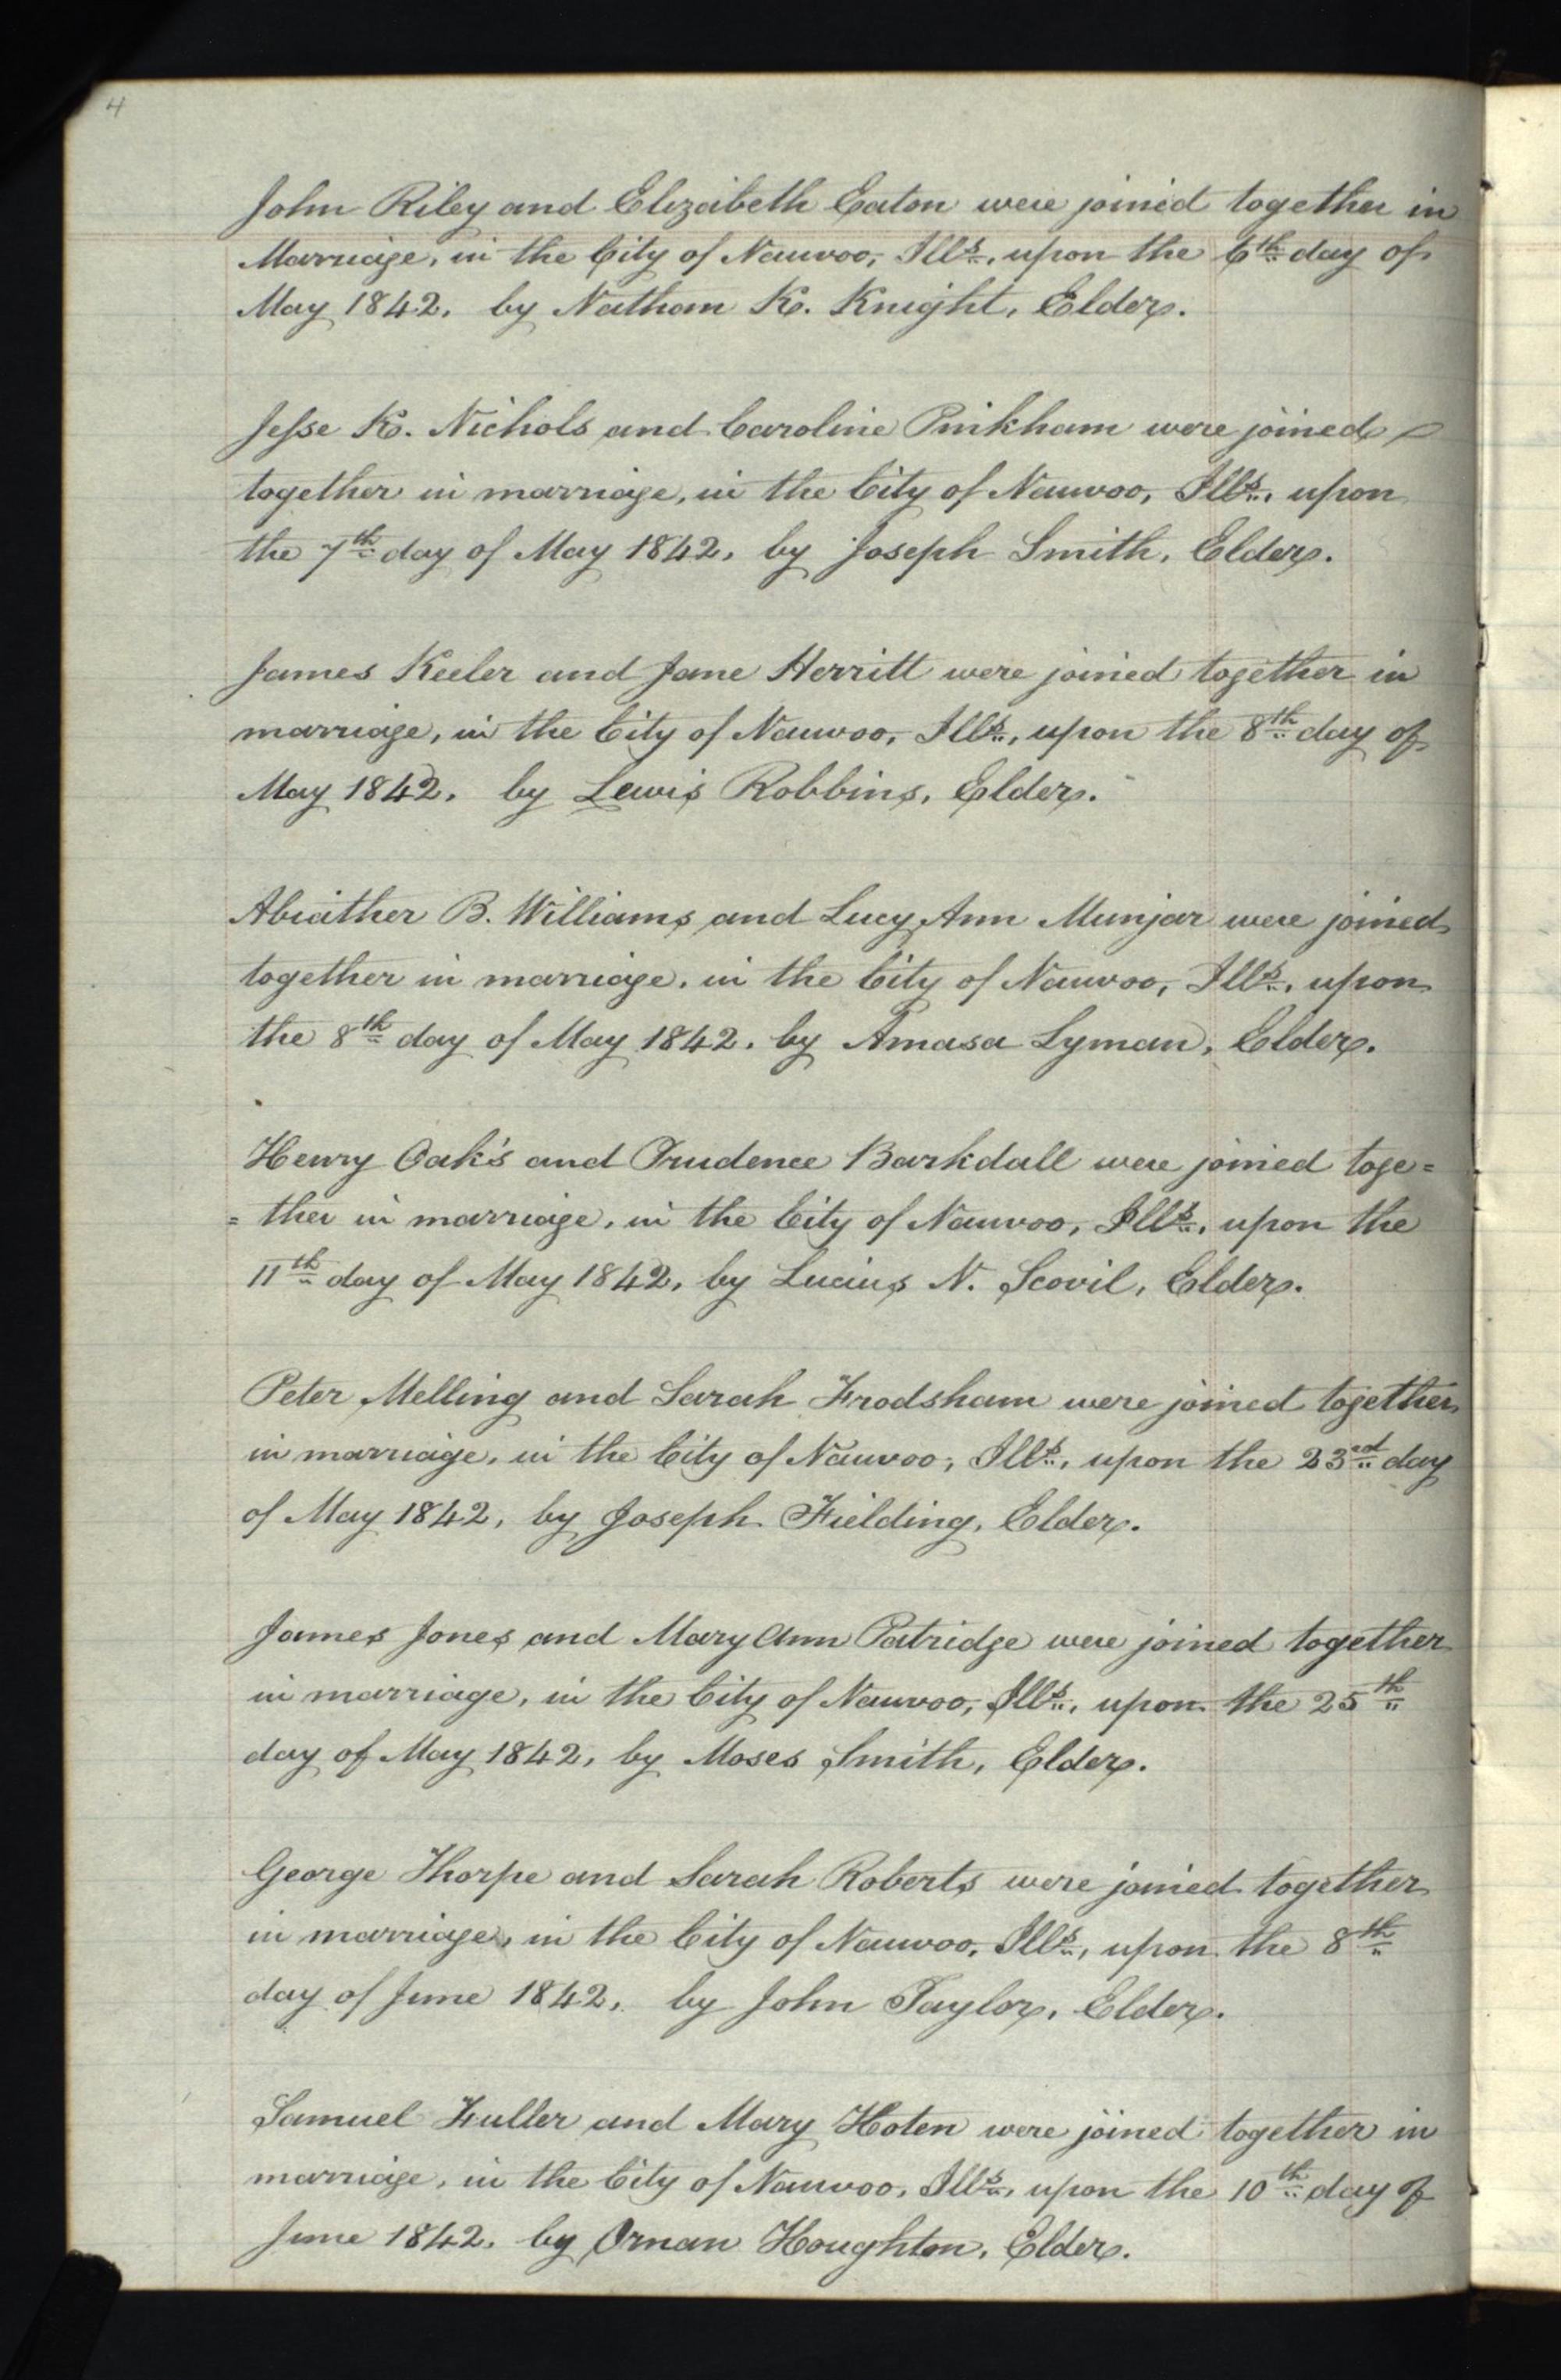 4
John Riley and Elizabeth Eaton were joined together in
Marriage, in the City of Nauvoo, Ills., upon the 6th day of
May 1842, by Nathan K. Knight, Elder.
Jesse K. Nichols and Caroline Pinkham were joined
together in marriage, in the City of Nauvoo, Ills., upon
the 7th day of May 1842, by Joseph Smith, Elder.
James Keeler and Jane Herritt were joined together in
marriage, in the City of Nauvoo, Ills., upon the 8th day of
May 1842, by Lewis Robbins, Elder.
Abiather B. Williams and Lucy Ann Munjar were joined
together in marriage, in the City of Nauvoo, Ills., upon
the 8th day of May 1842, by Amasa Lyman, Elder.
Henry Oak's and Prudence Barkdall were joined toge=
=ther in marriage, in the City of Nauvoo, Ills., upon the
11th day of May 1842, by Lucius N. Scovil, Elder.
Peter Melling and Sarah Frodsham were joined together
in marriage, in the City of Nauvoo, Ills., upon the 23rd day
of May 1842, by Joseph Fielding, Elder.
James Jones and Mary Ann Patridge were joined together
in marriage, in the City of Nauvoo, Ills., upon the 25th
day of May 1842, by Moses Smith, Elder.
George Thorpe and Sarah Roberts were joined together
in marriage, in the City of Nauvoo, Ills., upon the 8th
day of June 1842, by John Taylor, Elder.
Samuel Fuller and Mary Hoten were joined together in
marriage, in the City of Nauvoo, Ills., upon the 10th day of
June 1842, by Ornan Houghton, Elder.